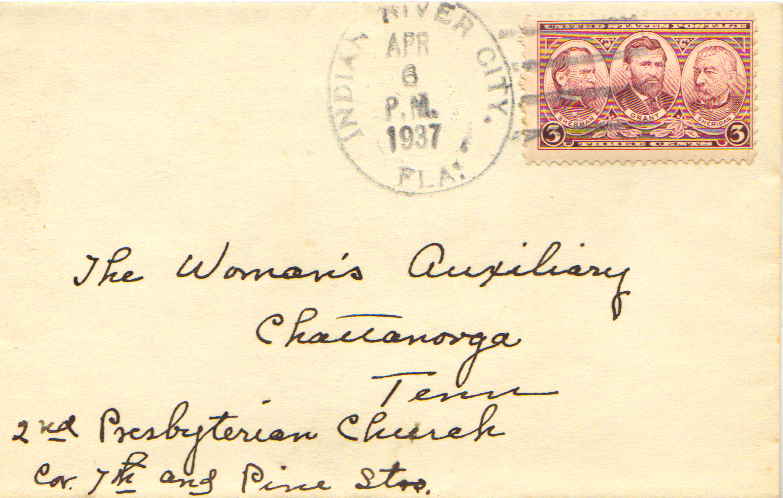 INDIAN RIVER CITY, FLA.
APR
6
P.M.
1937
UNITED STATES POSTAGE
SHERMAN GRANT SHERIDAN
3 3
THREE CENTS
The Woman's Auxiliary
Chattanooga
Tenn
2nd Presbyterian Church
Cor. 7th and Pine Strs.